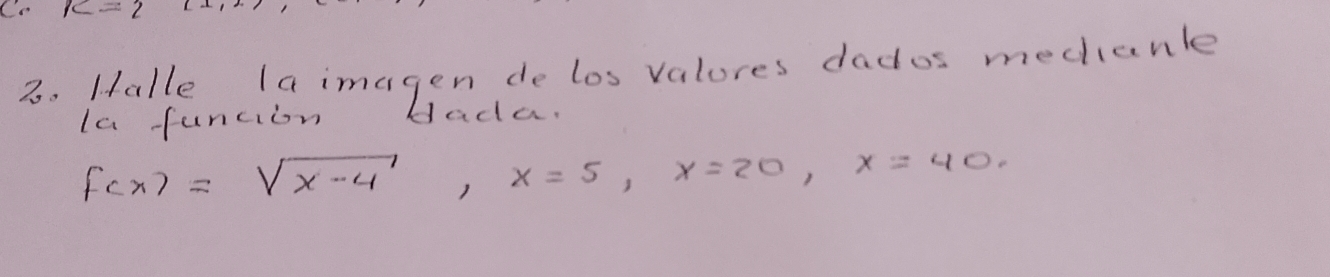 2. Halle la imagen de los valores dados mediante
la función dada.
f(x) = √x-4 , x = 5, x = 20, x = 40.